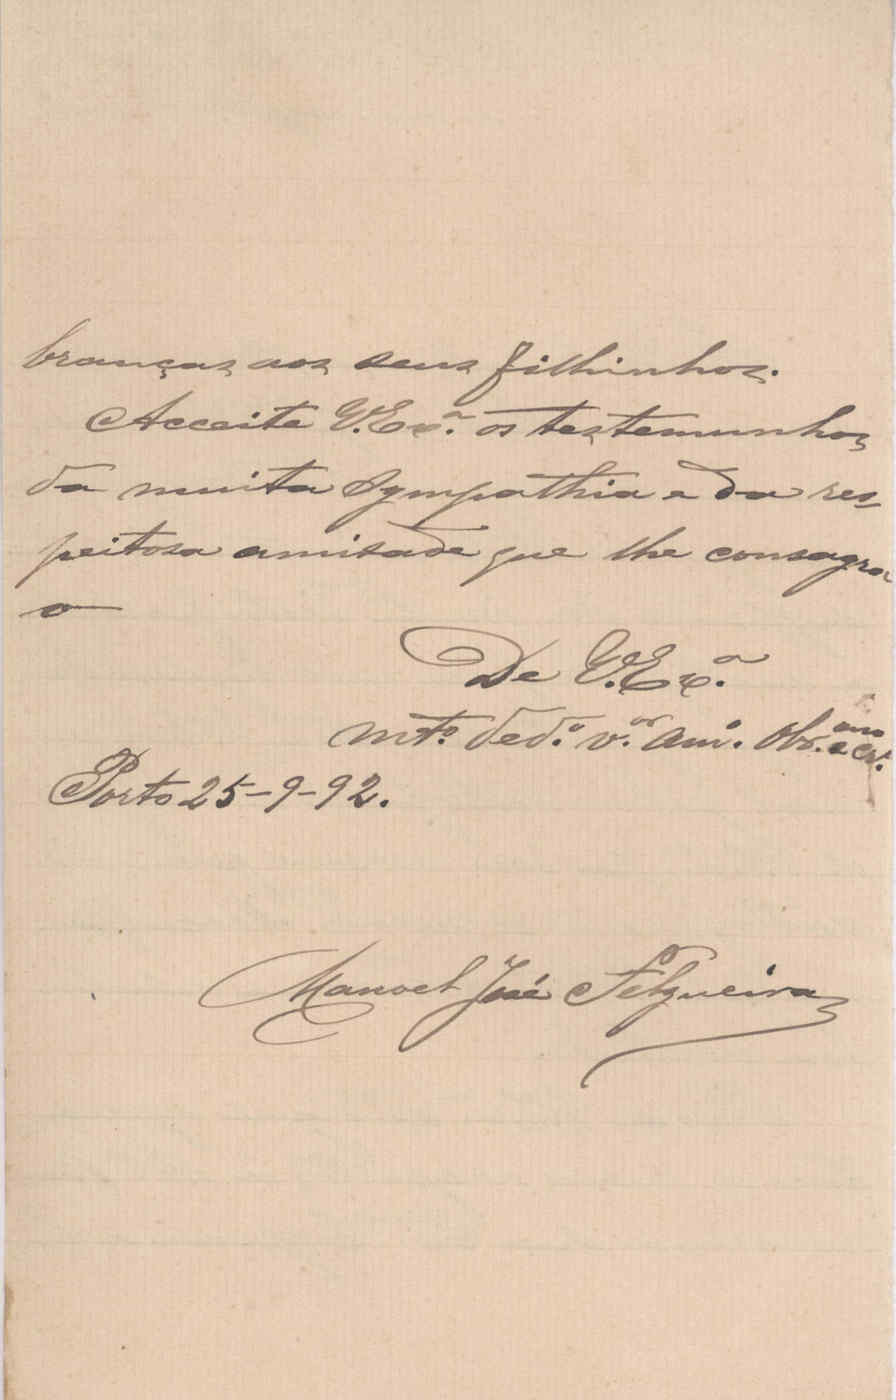 branças aos seus filhinhos.
Acceite V. Ex.ª os testemunhos
da muita sympathia e da res-
peitosa amisade que lhe consagra
o
De V. Ex.ª
mt.º ded.º v.ºr am.º obr.mo e cr.º
Porto 25-9-92.
Manoel José Felgueiras